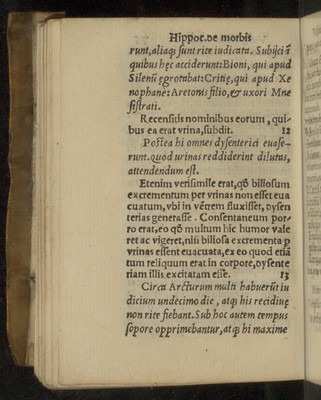 Hippoc. de morbis
runt, aliaq; sunt rite iudicata. Subijci ĩ
quibus hęc acciderunt: Bioni, qui apud
Silenũ egrotabat: Critię, qui apud Xe
nophane: Aretonis filio, & uxori Mne
sistrati.
Recensitis nominibus eorum, qui-
bus ea erat vrina, subdit. 12
Postea hi omnes dysenterici euase-
runt. quod urinas reddiderint dilutas,
attendendum est.
Etenim verisimile erat, qd̃ biliosum
excrementum per vrinas non esset eua
cuatum, vbi in vẽtrem fluxisset, dysen
terias generasse. Consentaneum por-
ro erat, eo qd̃ multum hic humor vale
ret ac vigeret, nisi biliosa excrementa p
vrinas essent euacuata, ex eo quod etiã
tum reliquum erat in corpore, dysente
riam illis excitatam esse. 13
Circa Arcturum multi habuerũt iu
dicium undecimo die, atq; his recidiuę
non rite fiebant. Sub hoc autem tempus
sopore opprimebantur, atq; hi maxime